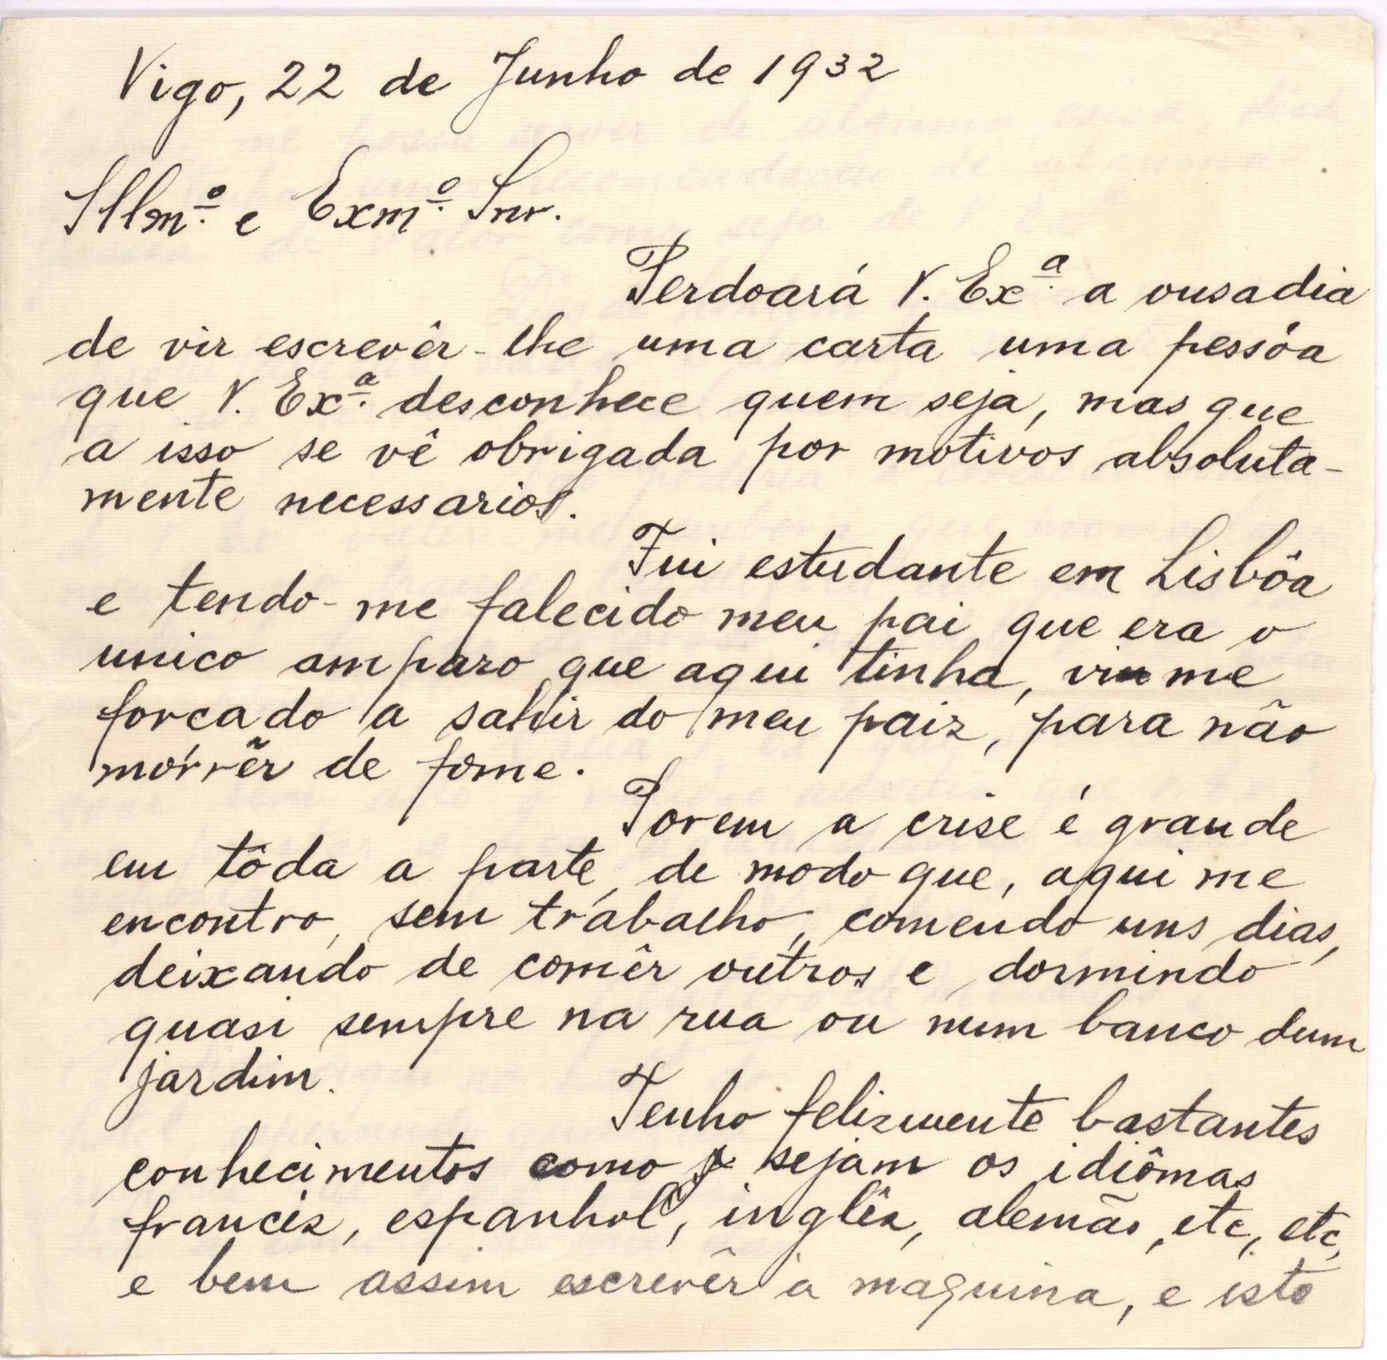 Vigo, 22 de Junho de 1932
Illmº. e Exmº. Snr.
Perdoará V. Exª. a ousadia
de vir escrevêr-lhe uma carta uma pessôa
que V. Exª. desconhece quem seja, mas que
a isso se vê obrigada por motivos absoluta-
mente necessarios.
Fui estudante em Lisbôa
e tendo-me falecido meu pai que era o
unico amparo que aqui tinha, vi me
forcado a sahir do meu paiz, para não
morrêr de fome.
Porem a crise é grande
em tôda a parte, de modo que, aqui me
encontro, sem trabalho, comendo uns dias,
deixando de comêr outros e dormindo
quasi sempre na rua ou num banco dum
jardim.
Tenho felizmente bastantes
conhecimentos como sejam os idiômas
francêz, espanhol, inglêz, alemão, etc, etc,
e bem assim escrevêr à maquina, e isto